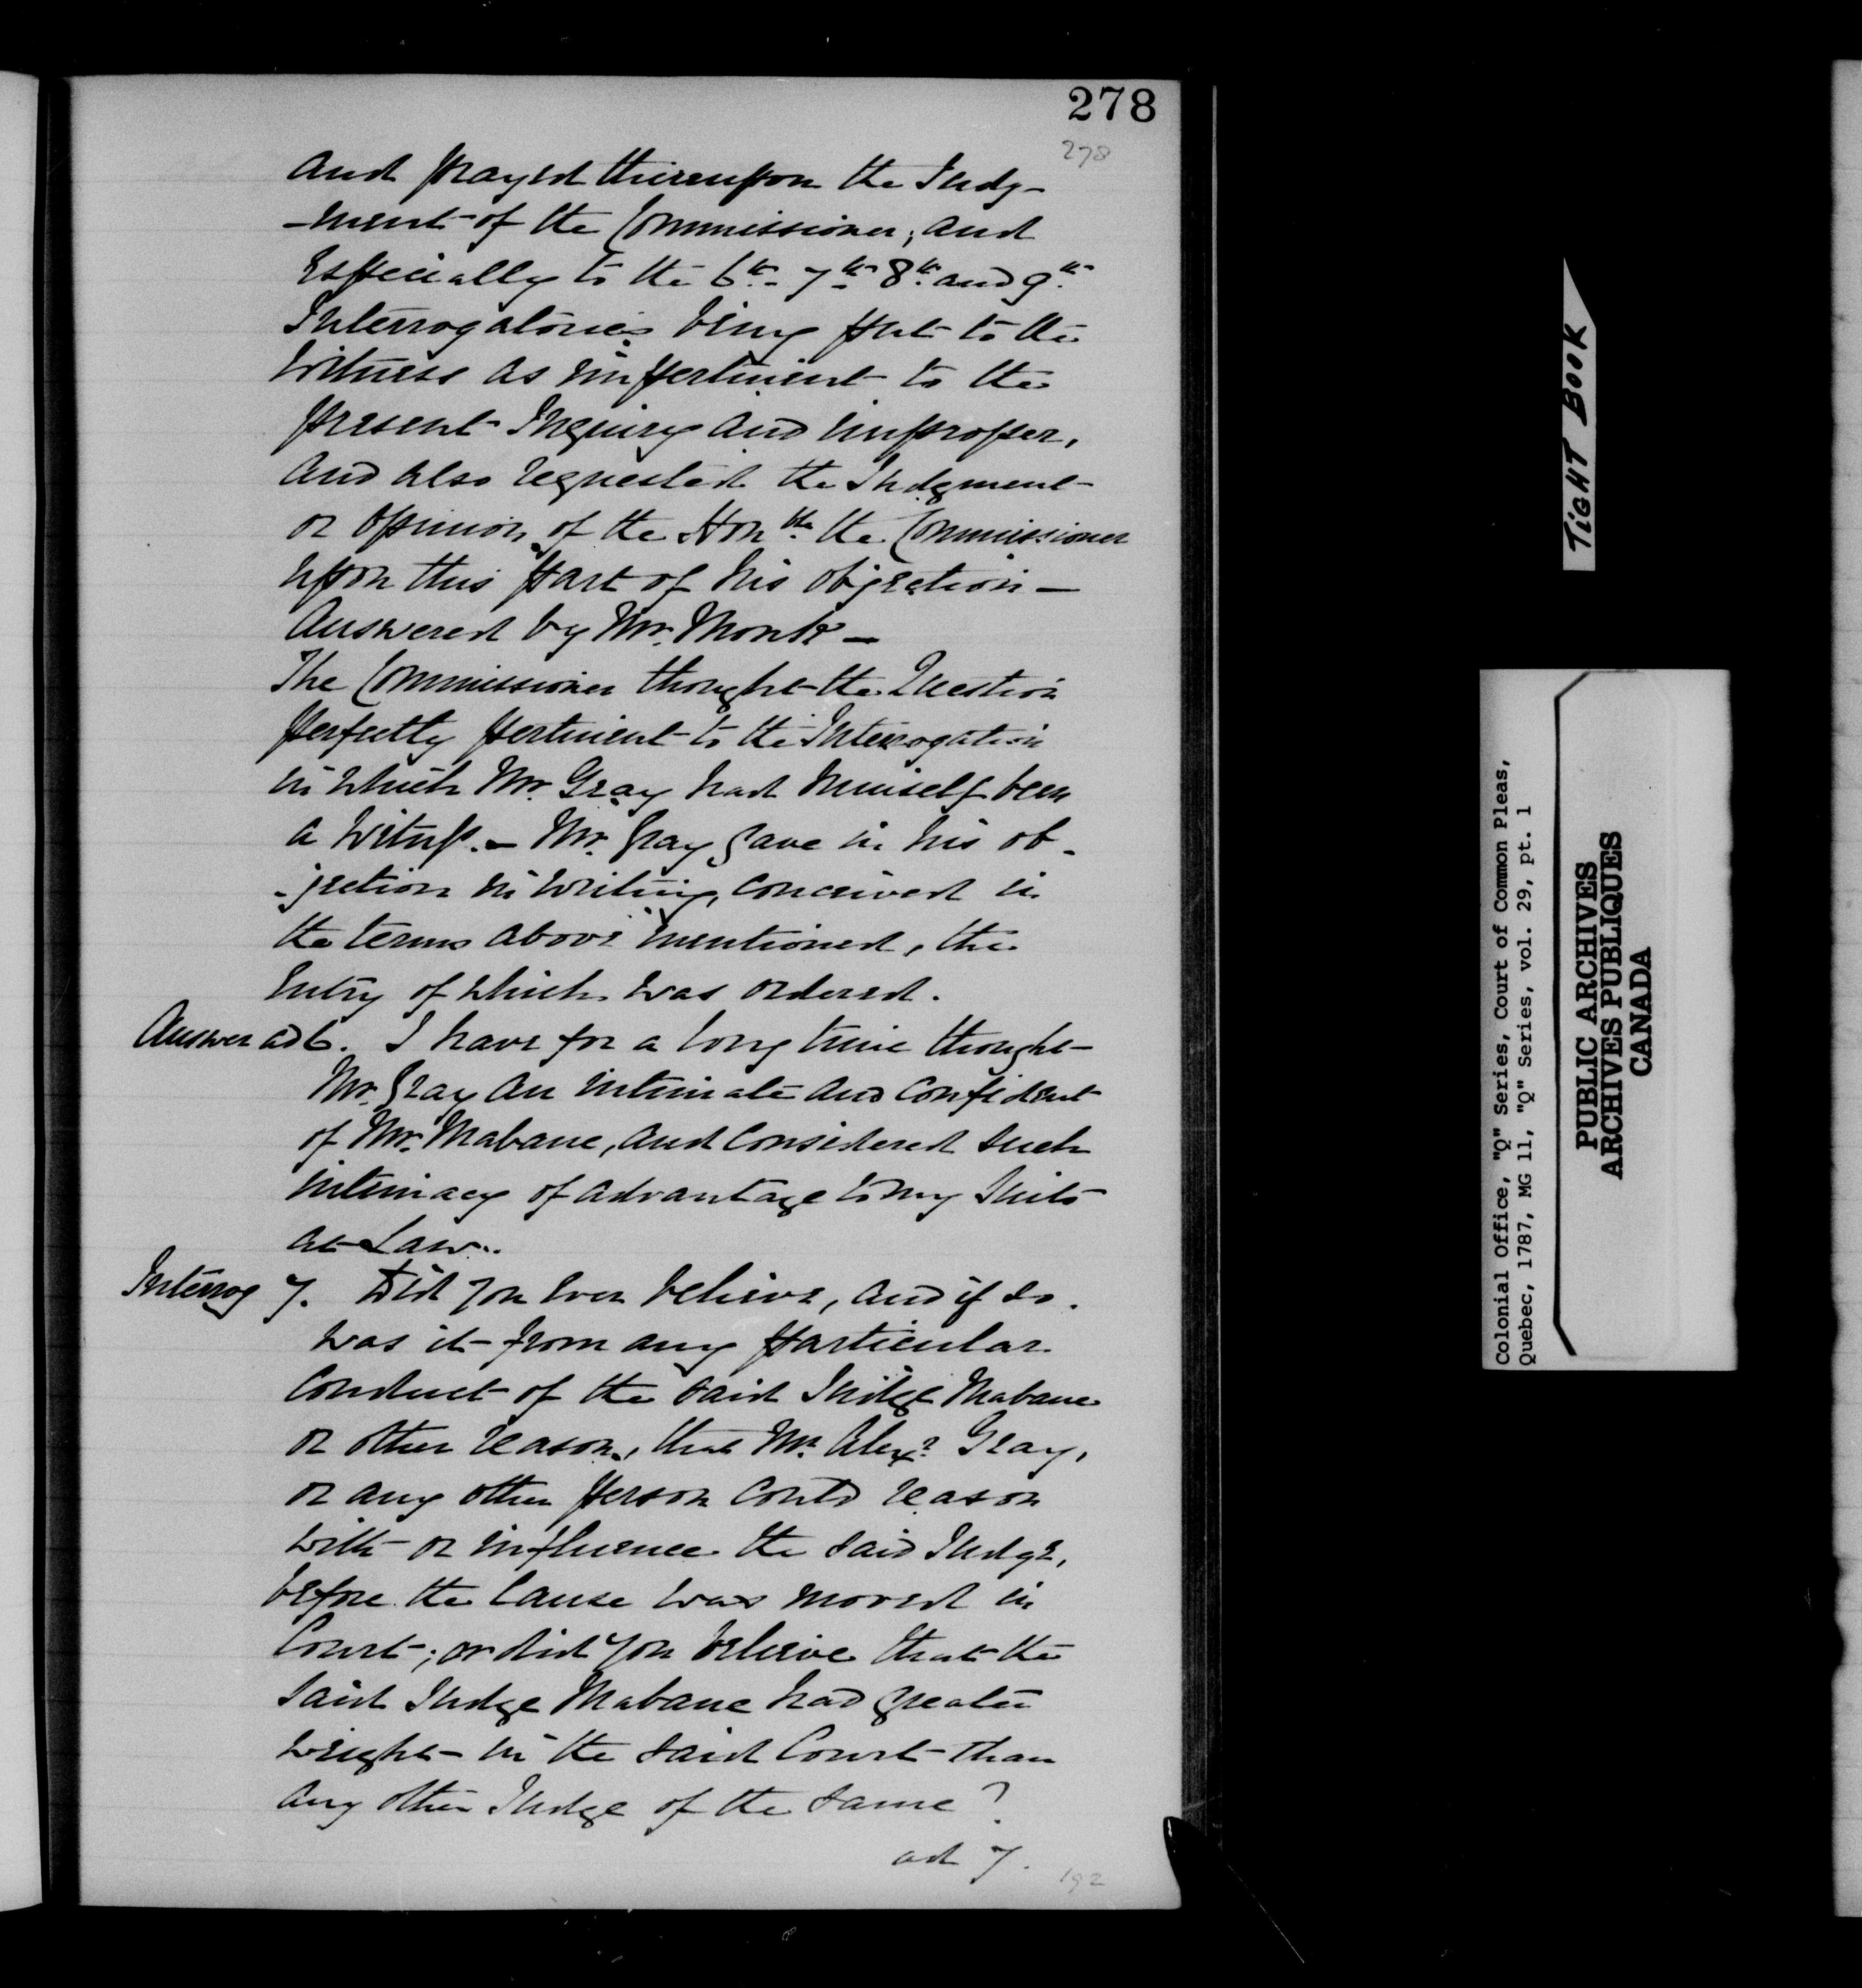 278
278
and prayed thereupon the Judg-
-ment of the Commissioner, and
especially to the 6th 7th 8th and 9th
Interrogatories being put to the
Witness as impertinent to the
present Inquiry and improper,
and also requested the Judgment
or opinion of the Honble the Commissioner
upon this part of his objection —
Answered by Mr. Monk —
The Commissioner thought the Question
perfectly pertinent to the Interrogation
in which Mr. Gray had himself been
a Witness. — Mr. Gray gave in his ob-
-jection in writing, conceived in
the terms above mentioned, the
entry of which was ordered.
Answer ad 6. I have for a long time thought
Mr. Gray an intimate and confident
of Mr. Mabane, and considered such
intimacy of advantage to my Suits
at Law.
Interrog 7. Did you ever believe, and if so.
was it from any particular
conduct of the said Judge Mabane
or other reason, that Mr. Alexr. Gray,
or any other person could reason
with or influence the said Judge,
before the Cause was moved in
Court; or did you believe that the
said Judge Mabane had greater
weight in the said Court than
any other Judge of the same?
ad 7.
192
TIGHT BOOK
Colonial Office, "Q" Series, Court of Common Pleas,
Quebec, 1787, MG 11, "Q" Series, vol. 29, pt. 1
PUBLIC ARCHIVES
ARCHIVES PUBLIQUES
CANADA